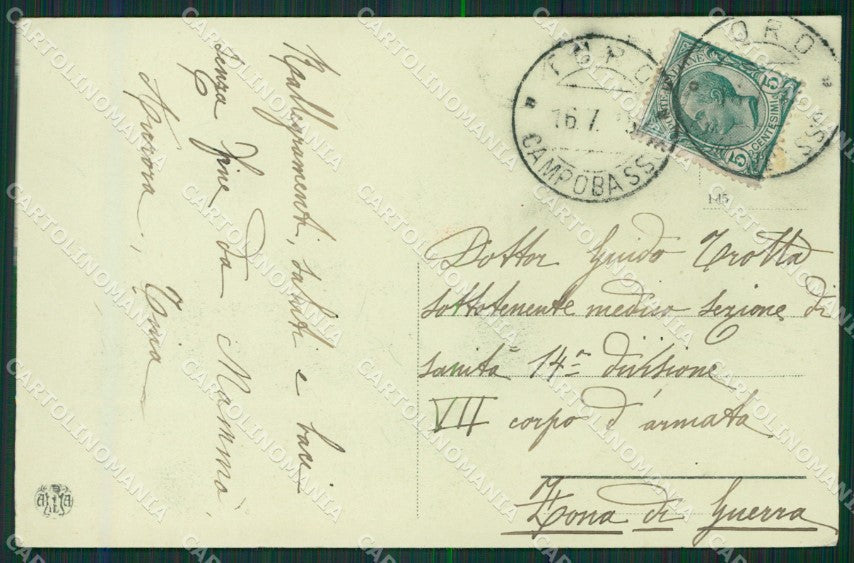 Rallegramenti, saluti e baci
senza fine da Mammà,
Aurora, Tina
TORO
16.7
CAMPOBASSO
TORO
5 CENTESIMI 5
145
Dottor Guido Trotta
sottotenente medico sezione di
sanità 14ª divisione
VII corpo d'armata
Zona di Guerra
CARTOLINOMANIA